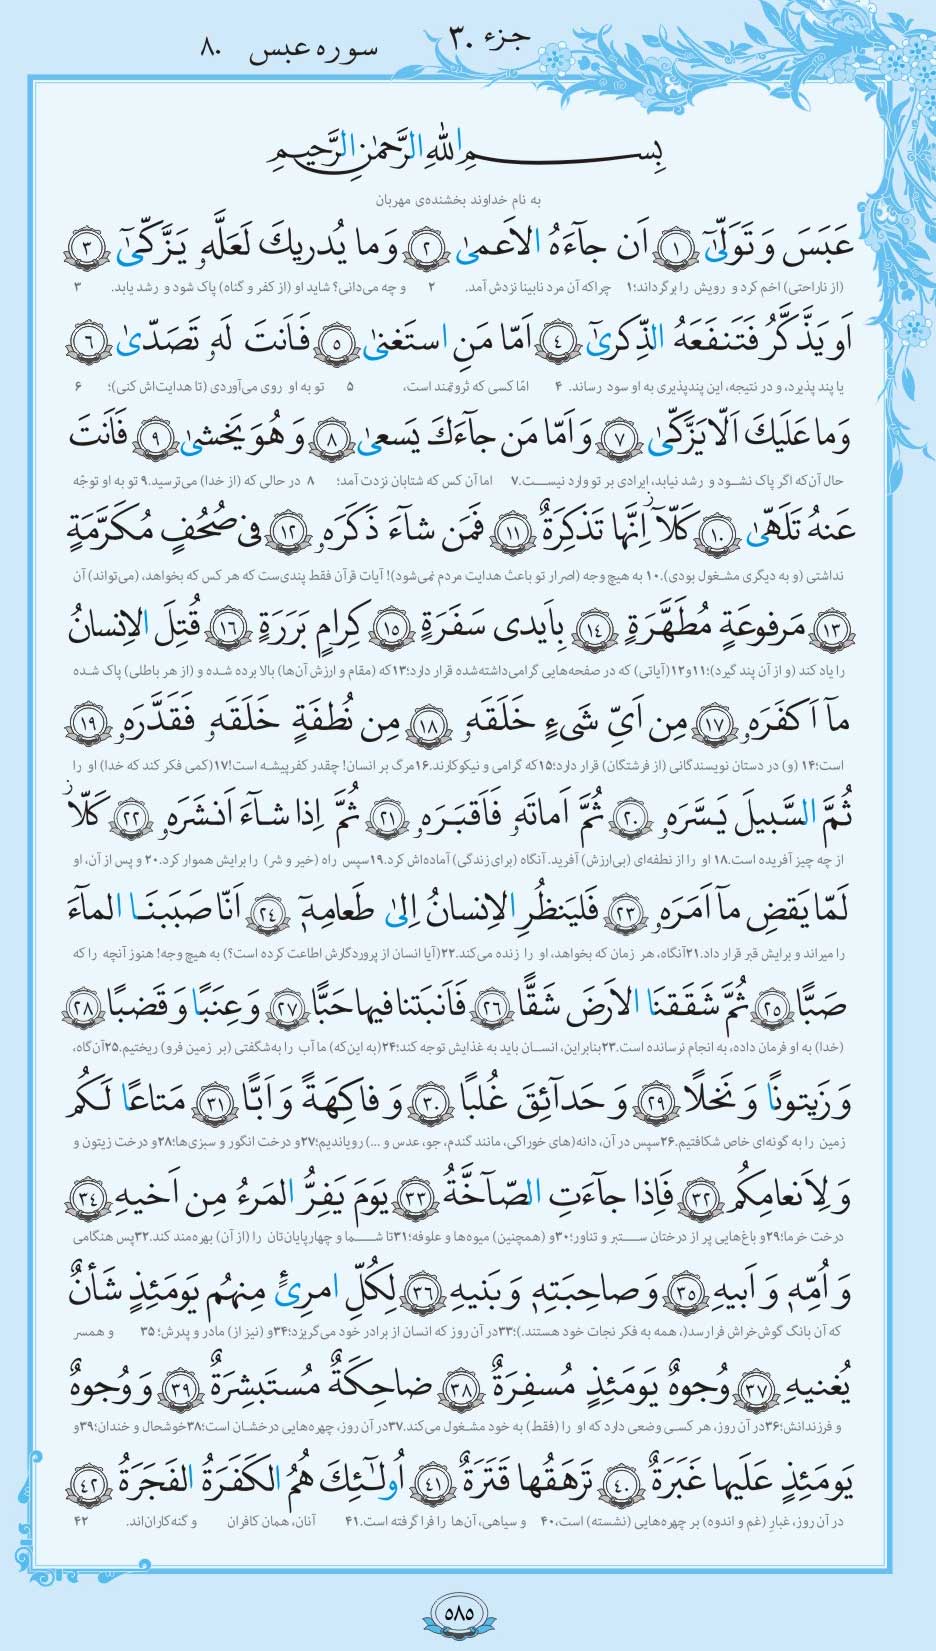 جزء ۳۰
سوره عبس ۸۰
بِسمِ اللهِ الرَّحمٰنِ الرَّحیمِ
به نام خداوند بخشنده‌ی مهربان
عَبَسَ وَ تَوَلّىٰٓ ﴿١﴾ اَن جآءَهُ الاَعمىٰ ﴿٢﴾ وَ ما یُدریكَ لَعَلَّهٗ یَزَّكّىٰٓ ﴿٣﴾
(از ناراحتی) اخم کرد و رویش را برگرداند؛۱ چراکه آن مرد نابینا نزدش آمد. ۲ و چه می‌دانی؟ شاید او (از کفر و گناه) پاک شود و رشد یابد. ۳
اَو یَذَّكَّرُ فَتَنفَعَهُ الذِّكرىٰٓ ﴿٤﴾ اَمّا مَنِ استَغنىٰ ﴿٥﴾ فَاَنتَ لَهٗ تَصَدّىٰ ﴿٦﴾
یا پند پذیرد، و در نتیجه، این پندپذیری به او سود رساند. ۴ امّا کسی که ثروتمند است، ۵ تو به او روی می‌آوردی (تا هدایت‌اش کنی)؛ ۶
وَ ما عَلَیكَ اَلّا یَزَّكّىٰ ﴿٧﴾ وَ اَمّا مَن جآءَكَ یَسعىٰ ﴿٨﴾ وَ هُوَ یَخشىٰ ﴿٩﴾ فَاَنتَ
حال آن‌که اگر پاک نشود و رشد نیابد، ایرادی بر تو وارد نیست.۷ اما آن کس که شتابان نزدت آمد؛ ۸ در حالی که (از خدا) می‌ترسید.۹ تو به او توجّه
عَنهُ تَلَهّىٰ ﴿١٠﴾ كَلّآ اِنَّها تَذكِرَةٌ ﴿١١﴾ فَمَن شآءَ ذَكَرَهٗ ﴿١٢﴾ فی صُحُفٍ مُكَرَّمَةٍ
نداشتی (و به دیگری مشغول بودی).۱۰ به هیچ وجه (اصرار تو باعث هدایت مردم نمی‌شود)! آیات قرآن فقط پندی‌ست که هر کس که بخواهد، (می‌تواند) آن
﴿١٣﴾ مَرفوعَةٍ مُطَهَّرَةٍ ﴿١٤﴾ بِاَیدی سَفَرَةٍ ﴿١٥﴾ كِرامٍ بَرَرَةٍ ﴿١٦﴾ قُتِلَ الاِنسانُ
را یاد کند (و از آن پند گیرد)؛۱۱و۱۲(آیاتی) که در صفحه‌هایی گرامی‌داشته‌شده قرار دارد؛۱۳که (مقام و ارزش آن‌ها) بالا برده شده و (از هر باطلی) پاک شده
مآ اَكفَرَهٗ ﴿١٧﴾ مِن اَیِّ شَیءٍ خَلَقَهٗ ﴿١٨﴾ مِن نُطفَةٍ خَلَقَهٗ فَقَدَّرَهٗ ﴿١٩﴾
است؛۱۴ (و) در دستان نویسندگانی (از فرشتگان) قرار دارد؛۱۵که گرامی و نیکوکارند.۱۶مرگ بر انسان! چقدر کفرپیشه است!۱۷(کمی فکر کند که خدا) او را
ثُمَّ السَّبیلَ یَسَّرَهٗ ﴿٢٠﴾ ثُمَّ اَماتَهٗ فَاَقبَرَهٗ ﴿٢١﴾ ثُمَّ اِذا شآءَ اَنشَرَهٗ ﴿٢٢﴾ كَلّا
از چه چیز آفریده است.۱۸ او را از نطفه‌ای (بی‌ارزش) آفرید. آنگاه (برای زندگی) آماده‌اش کرد.۱۹سپس راه (خیر و شر) را برایش هموار کرد.۲۰ و پس از آن، او
لَمّا یَقضِ مآ اَمَرَهٗ ﴿٢٣﴾ فَلیَنظُرِ الاِنسانُ اِلىٰ طَعامِهٖٓ ﴿٢٤﴾ اَنّا صَبَبنَا المآءَ
را میراند و برایش قبر قرار داد.۲۱آنگاه، هر زمان که بخواهد، او را زنده می‌کند.۲۲(آیا انسان از پروردگارش اطاعت کرده است؟) به هیچ وجه! هنوز آنچه را که
صَبًّا ﴿٢٥﴾ ثُمَّ شَقَقنَا الاَرضَ شَقًّا ﴿٢٦﴾ فَاَنبَتنا فیها حَبًّا ﴿٢٧﴾ وَ عِنَبًا وَ قَضبًا ﴿٢٨﴾
(خدا) به او فرمان داده، به انجام نرسانده است.۲۳بنابراین، انسان باید به غذایش توجه کند؛۲۴(به این‌که) ما آب را به‌شگفتی (بر زمین فرو) ریختیم.۲۵آن‌گاه،
وَ زَیتونًا وَ نَخلًا ﴿٢٩﴾ وَ حَدآئِقَ غُلبًا ﴿٣٠﴾ وَ فاكِهَةً وَ اَبًّا ﴿٣١﴾ مَتاعًا لَكُم
زمین را به گونه‌ای خاص شکافتیم.۲۶سپس در آن، دانه(های خوراکی، مانند گندم، جو، عدس و ...) رویاندیم؛۲۷و درخت انگور و سبزی‌ها؛۲۸و درخت زیتون و
وَ لِاَنعامِكُم ﴿٣٢﴾ فَاِذا جآءَتِ الصّآخَّةُ ﴿٣٣﴾ یَومَ یَفِرُّ المَرءُ مِن اَخیهِ ﴿٣٤﴾
درخت خرما؛۲۹و باغ‌هایی پر از درختان ستبر و تناور؛۳۰و (همچنین) میوه‌ها و علوفه؛۳۱تا شما و چهارپایان‌تان را (از آن) بهره‌مند کند.۳۲پس هنگامی
وَ اُمِّهٖ وَ اَبیهِ ﴿٣٥﴾ وَ صاحِبَتِهٖ وَ بَنیهِ ﴿٣٦﴾ لِكُلِّ امرِئٍ مِنهُم یَومَئِذٍ شَأنٌ
که آن بانگ گوش‌خراش فرارسد(، همه به فکر نجات خود هستند.)؛۳۳در آن روز که انسان از برادر خود می‌گریزد؛۳۴و (نیز از) مادر و پدرش؛ ۳۵ و همسر
یُغنیهِ ﴿٣٧﴾ وُجوهٌ یَومَئِذٍ مُسفِرَةٌ ﴿٣٨﴾ ضاحِكَةٌ مُستَبشِرَةٌ ﴿٣٩﴾ وَ وُجوهٌ
و فرزندانش؛۳۶در آن روز، هر کسی وضعی دارد که او را (فقط) به خود مشغول می‌کند.۳۷در آن روز، چهره‌هایی درخشان است؛۳۸خوشحال و خندان؛۳۹و
یَومَئِذٍ عَلَیها غَبَرَةٌ ﴿٤٠﴾ تَرهَقُها قَتَرَةٌ ﴿٤١﴾ اُولٰٓئِكَ هُمُ الكَفَرَةُ الفَجَرَةُ ﴿٤٢﴾
در آن روز، غبارِ (غم و اندوه) بر چهره‌هایی (نشسته) است،۴۰ و سیاهی، آن‌ها را فرا گرفته است.۴۱ آنان، همان کافران و گنه‌کاران‌اند. ۴۲
۵۸۵